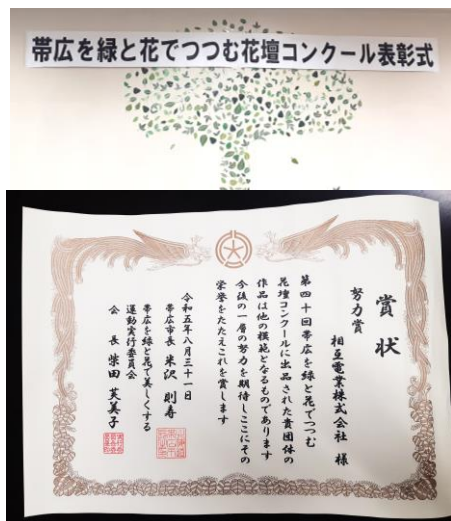 帯広を緑と花でつつむ花壇コンクール表彰式
賞状
努力賞
相互電業株式会社 様
第四十回帯広を緑と花でつつむ
花壇コンクールに出品された貴団体の
作品は他の模範となるものであります
今後の一層の努力を期待しここにその
栄誉をたたえこれを賞します
令和五年八月三十一日
帯広市長 米沢則寿
帯広を緑と花で美しくする
運動実行委員会
会長 柴田芙美子